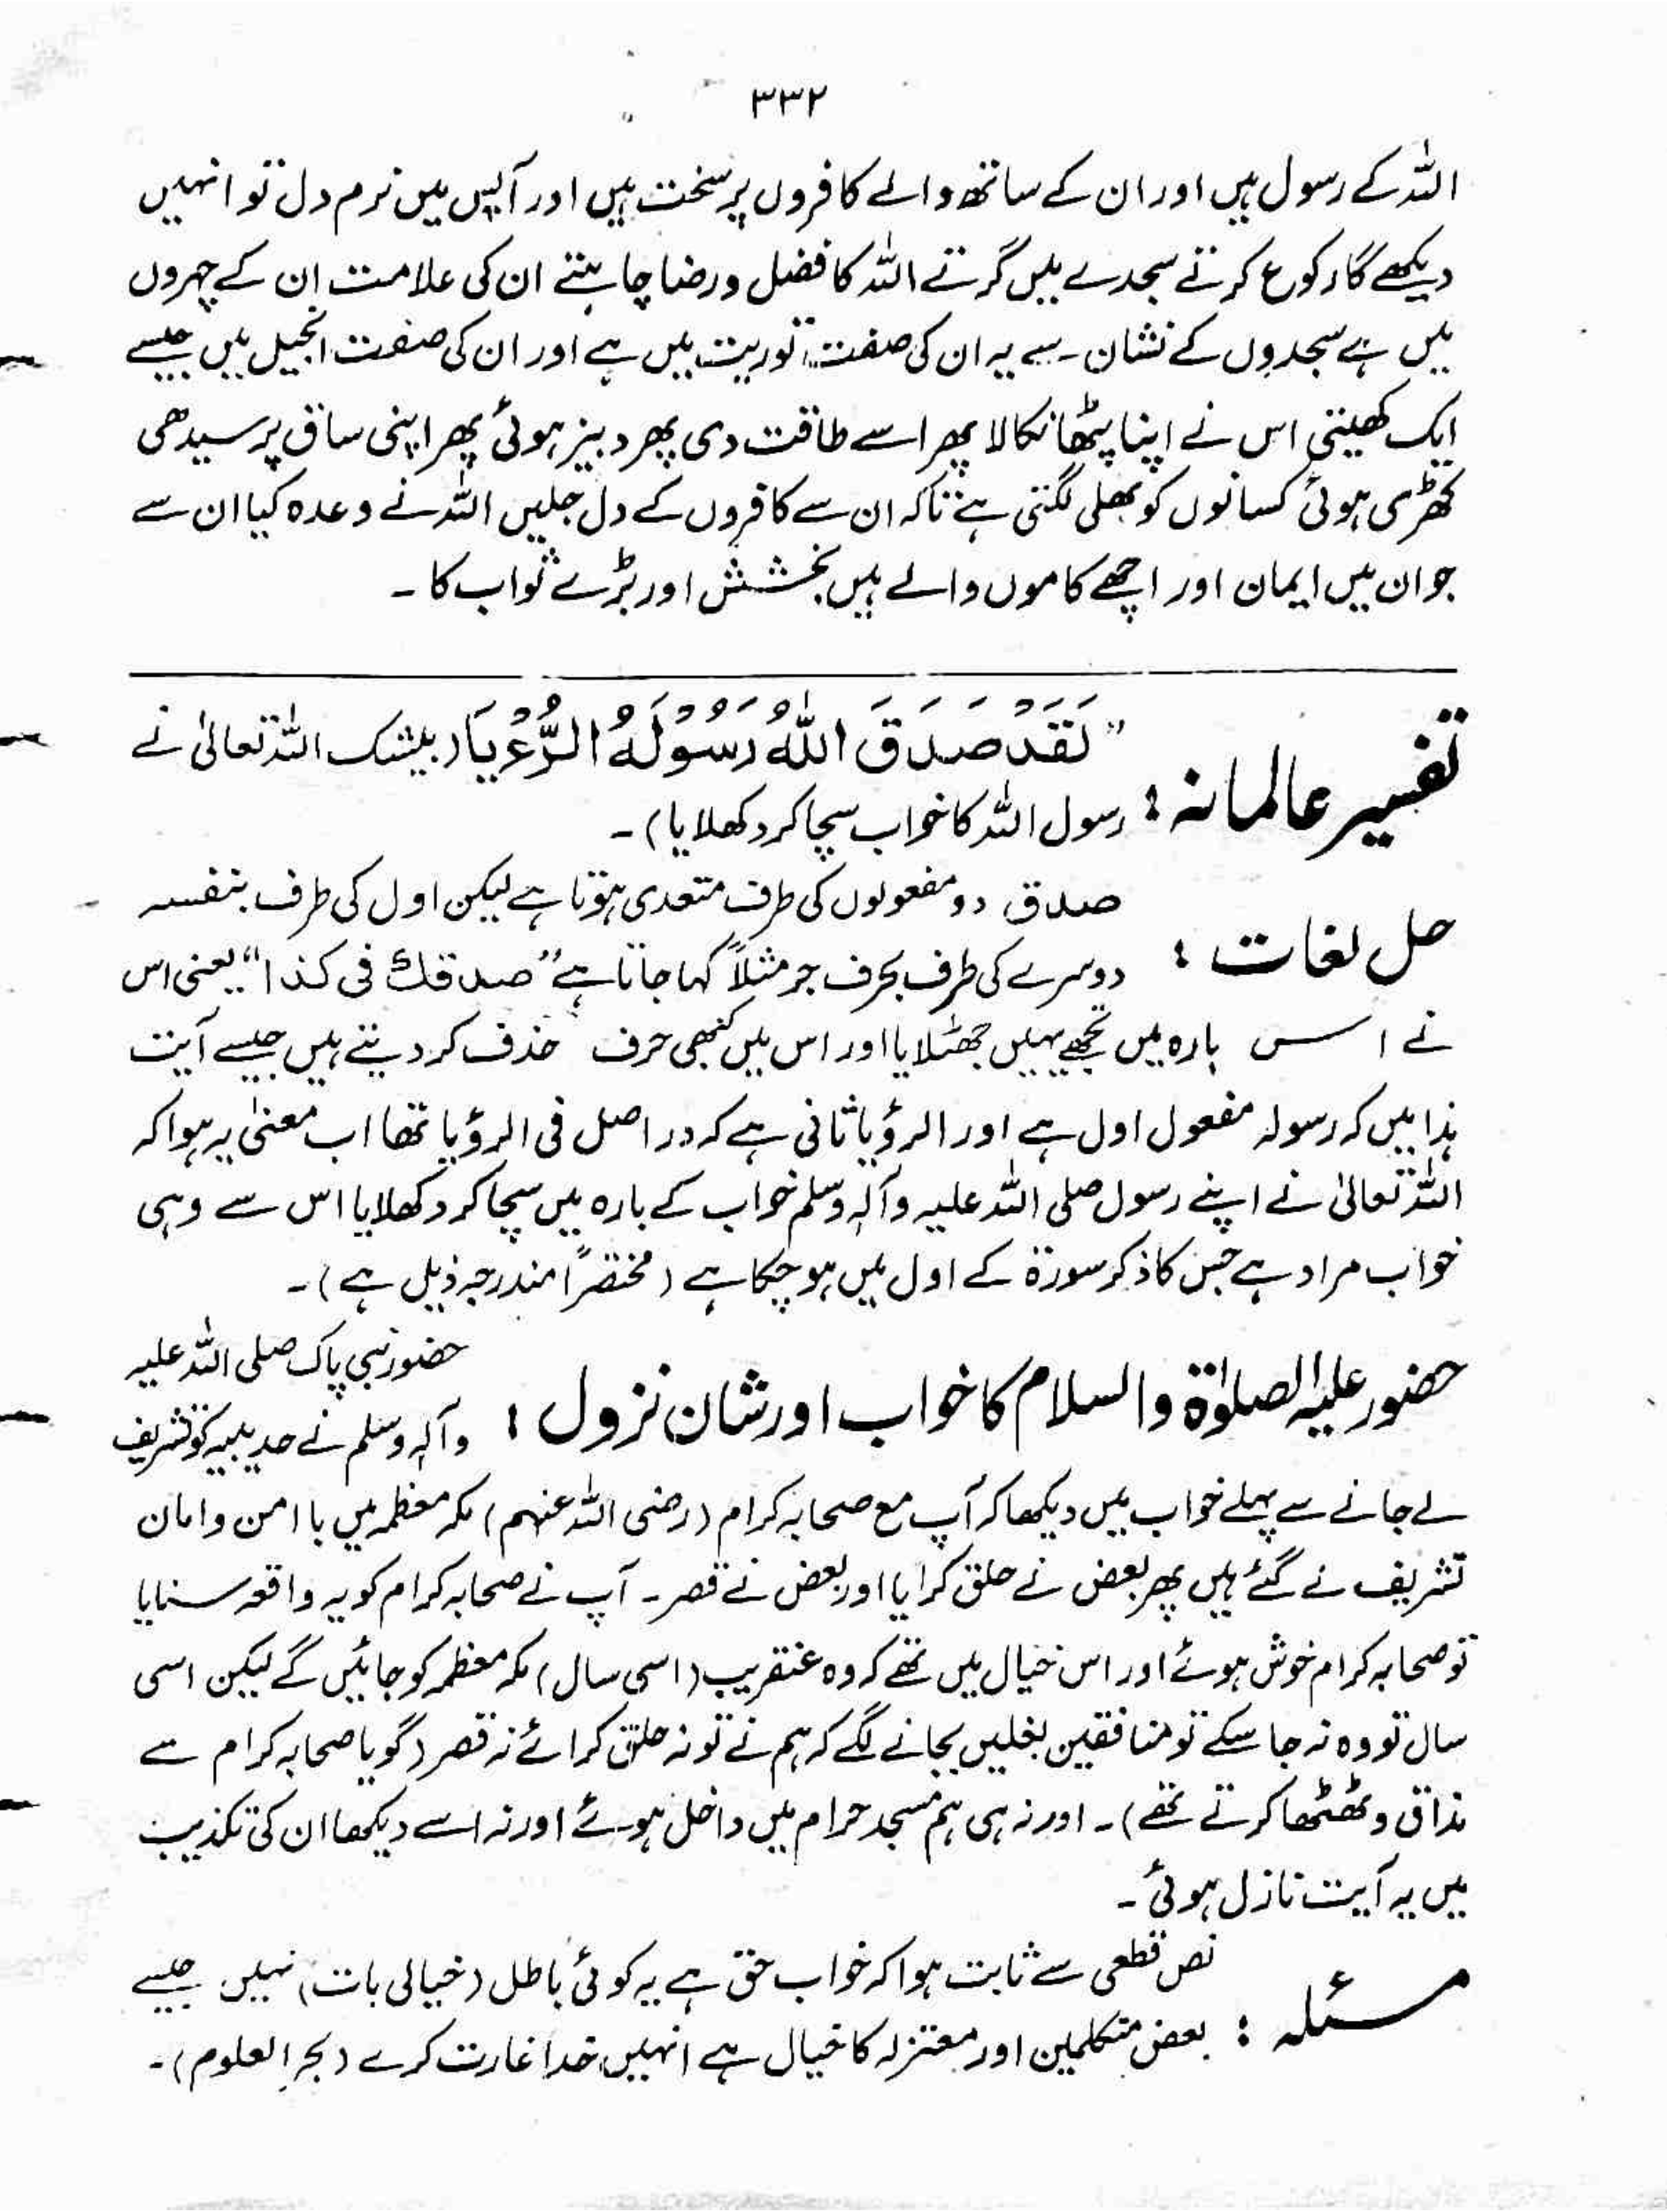 ۳۳۲
اللہ کے رسول ہیں اور ان کے ساتھ والے کافروں پر سخت ہیں اور آپس میں نرم دل تو انہیں
دیکھے گا رکوع کرتے سجدے میں گرتے اللہ کا فضل و رضا چاہتے ان کی علامت ان کے چہروں
میں ہے سجدوں کے نشان سے یہ ان کی صفت توریت میں ہے اور ان کی صفت انجیل میں جیسے
ایک کھیتی اس نے اپنا پٹھا نکالا پھر اسے طاقت دی پھر دبیز ہوئی پھر اپنی ساق پر سیدھی
کھڑی ہوئی کسانوں کو بھلی لگتی ہے تاکہ ان سے کافروں کے دل جلیں اللہ نے وعدہ کیا ان سے
جو ان میں ایمان اور اچھے کاموں والے ہیں بخشش اور بڑے ثواب کا ۔
تفسیر عالمانہ : "لَقَدْ صَدَقَ اللّٰهُ رَسُوْلَهُ الرُّءْيَا (بیشک اللہ تعالیٰ نے
رسول اللہ کا خواب سچا کر دکھلایا) ۔
حل لغات : صدق دو مفعولوں کی طرف متعدی ہوتا ہے لیکن اول کی طرف بنفسہ
دوسرے کی طرف بحرف جر مثلاً کہا جاتا ہے "صدقك فی کذا" یعنی اس
نے اس بارہ میں تجھے نہیں جھٹلایا اور اس میں کبھی حرف حذف کر دیتے ہیں جیسے آیت
ہٰذا میں کہ رسولہ مفعول اول ہے اور الرؤیا ثانی ہے کہ در اصل فی الرؤیا تھا اب معنیٰ یہ ہوا کہ
اللہ تعالیٰ نے اپنے رسول صلی اللہ علیہ وآلہ وسلم خواب کے بارہ میں سچا کر دکھلایا اس سے وہی
خواب مراد ہے جس کا ذکر سورۃ کے اول میں ہو چکا ہے (مختصراً مندرجہ ذیل ہے) ۔
حضور علیہ الصلوٰۃ والسلام کا خواب اور شان نزول : حضور نبی پاک صلی اللہ علیہ
وآلہ وسلم نے حدیبیہ کو تشریف
لے جانے سے پہلے خواب میں دیکھا کہ آپ مع صحابہ کرام (رضی اللہ عنہم) مکہ معظمہ میں با امن و امان
تشریف لے گئے ہیں پھر بعض نے حلق کرایا اور بعض نے قصر ۔ آپ نے صحابہ کرام کو یہ واقعہ سنایا
تو صحابہ کرام خوش ہوئے اور اس خیال میں تھے کہ وہ عنقریب (اسی سال) مکہ معظمہ کو جائیں گے لیکن اسی
سال تو وہ نہ جا سکے تو منافقین بغلیں بجانے لگے کہ ہم نے تو نہ حلق کرائے نہ قصر (گویا صحابہ کرام سے
مذاق و ٹھٹھا کرتے تھے) ۔ اور نہ ہی ہم مسجد حرام میں داخل ہوئے اور نہ اسے دیکھا ان کی تکذیب
میں یہ آیت نازل ہوئی ۔
مسئلہ : نص قطعی سے ثابت ہوا کہ خواب حق ہے یہ کوئی باطل (خیالی بات) نہیں جیسے
بعض متکلمین اور معتزلہ کا خیال ہے انہیں خدا غارت کرے (بحر العلوم) ۔